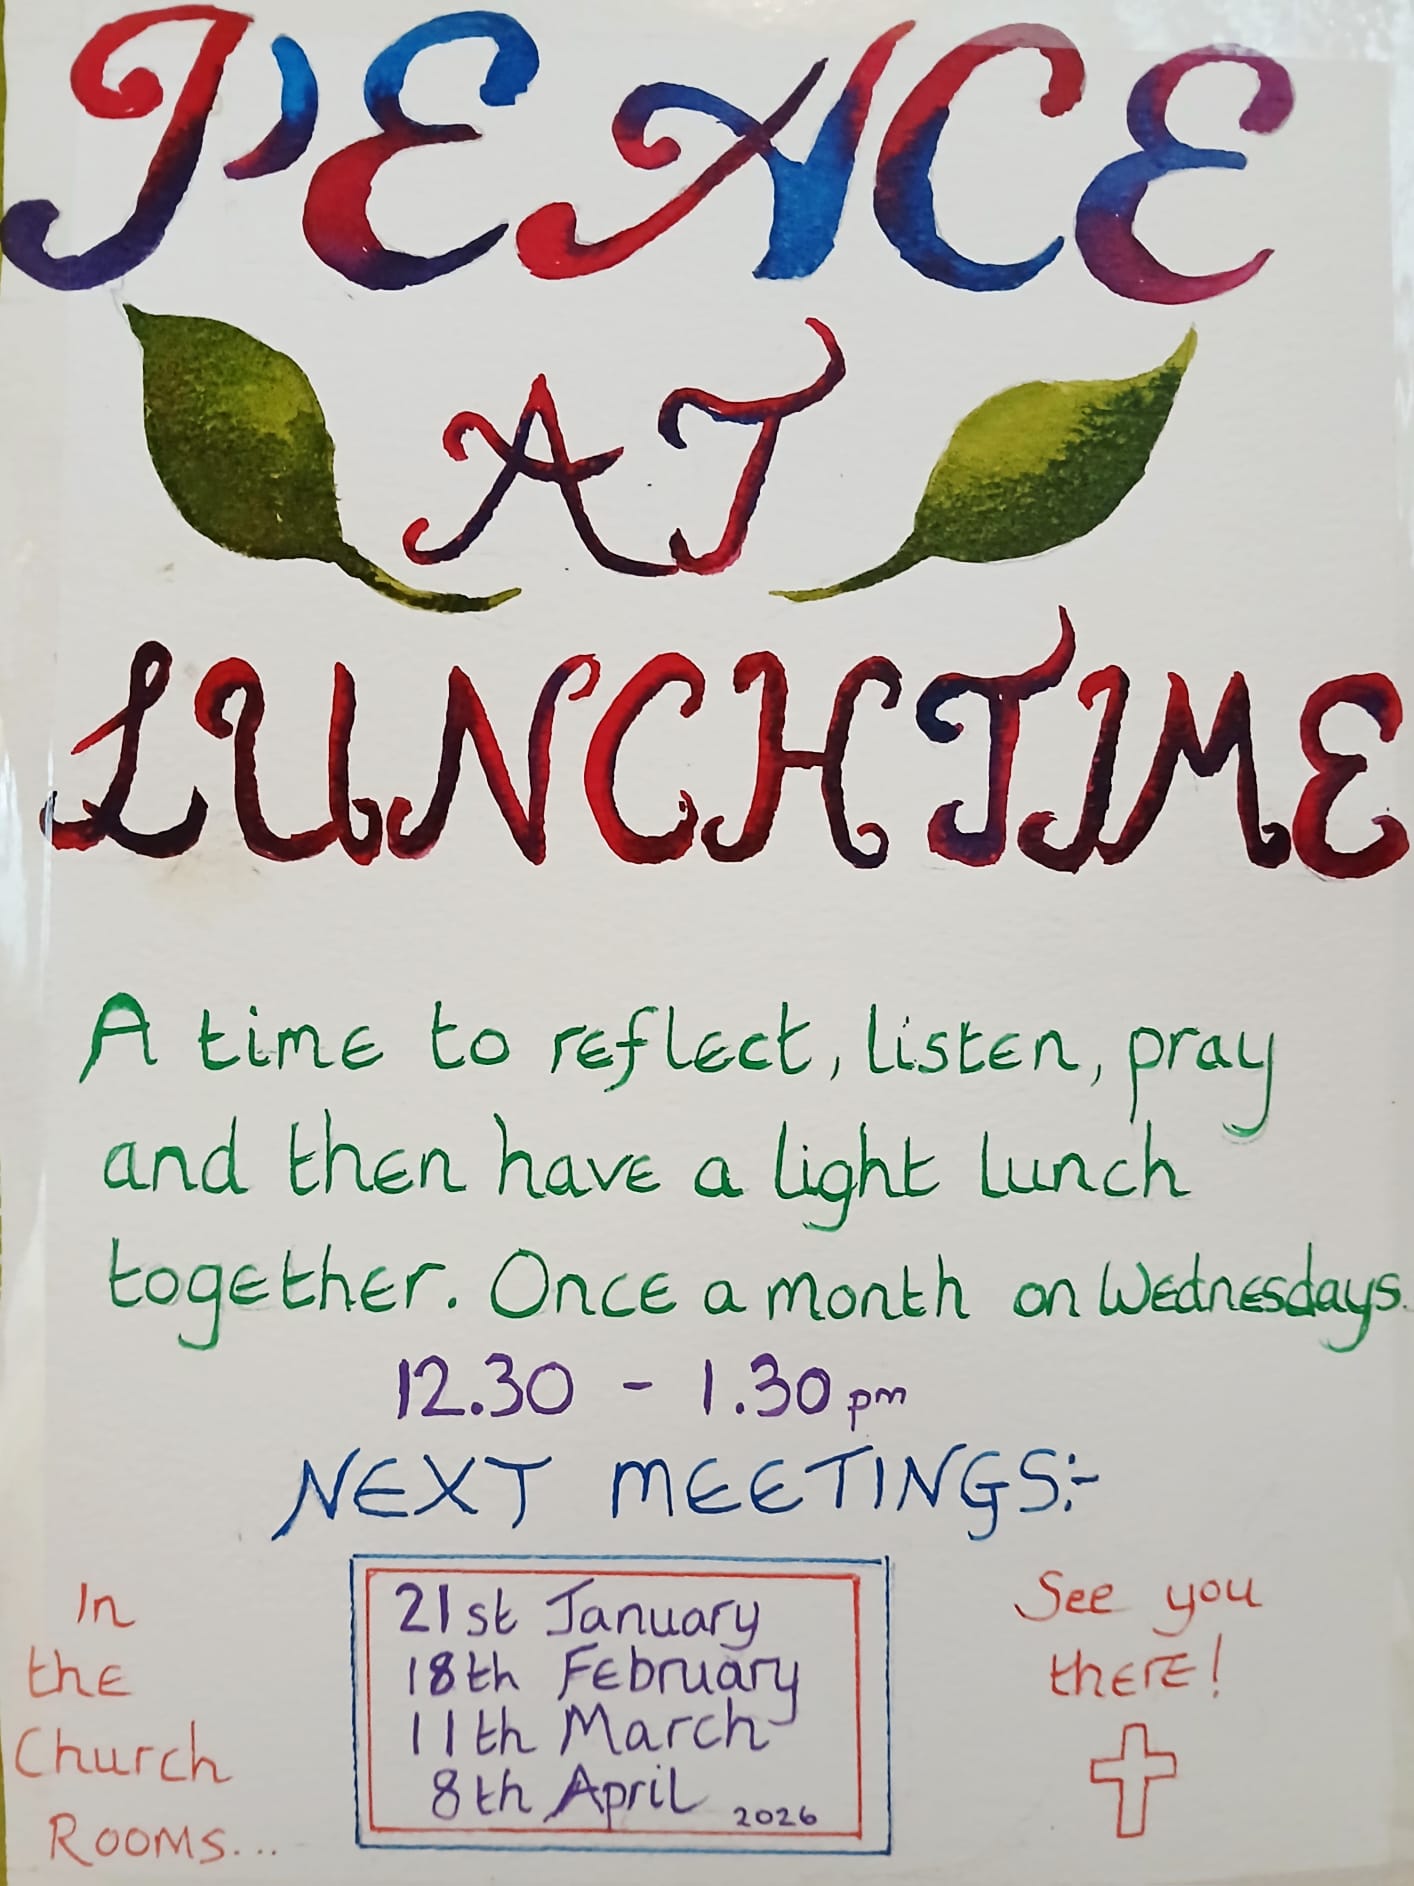 PEACE
AT
LUNCHTIME
A time to reflect, listen, pray
and then have a light lunch
together. Once a month on Wednesdays.
12.30 - 1.30 pm
NEXT MEETINGS:-
In
the
Church
Rooms...
21st January
18th February
11th March
8th April 2026
See you
there!